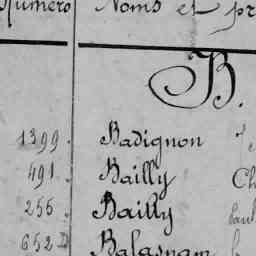 Numéro Noms et pr
B.
1399. Badignon
491. Bailly Ch
255. Bailly Paul
652 D Balagnam